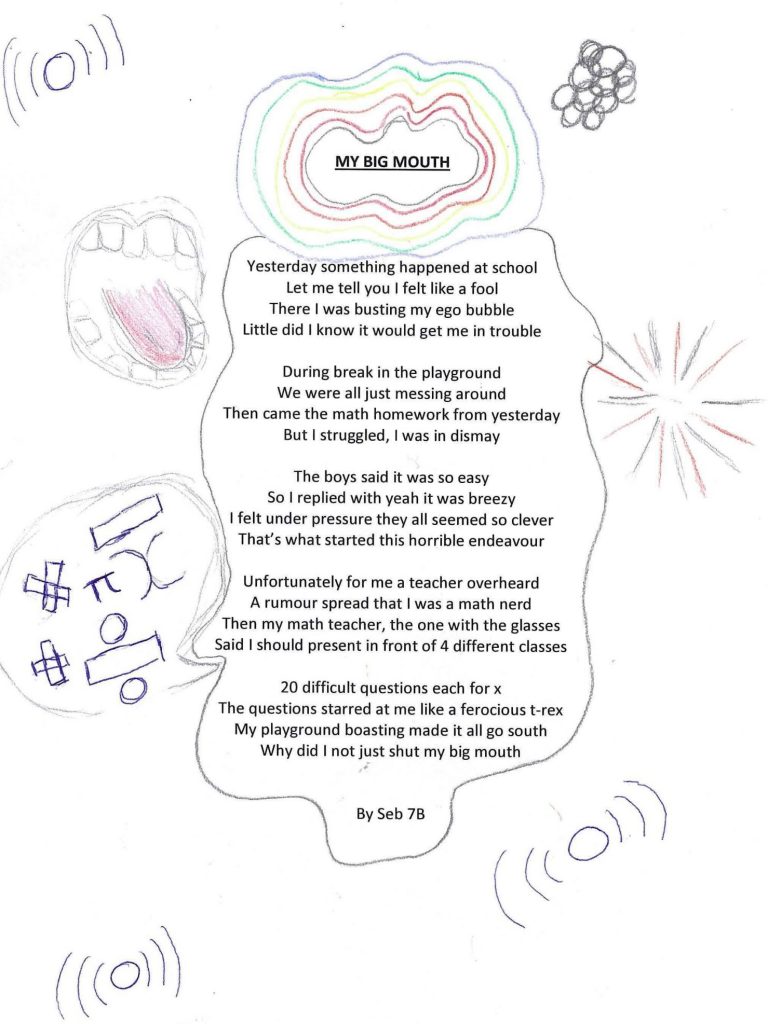 MY BIG MOUTH
Yesterday something happened at school
Let me tell you I felt like a fool
There I was busting my ego bubble
Little did I know it would get me in trouble
During break in the playground
We were all just messing around
Then came the math homework from yesterday
But I struggled, I was in dismay
The boys said it was so easy
So I replied with yeah it was breezy
I felt under pressure they all seemed so clever
That's what started this horrible endeavour
Unfortunately for me a teacher overheard
A rumour spread that I was a math nerd
Then my math teacher, the one with the glasses
Said I should present in front of 4 different classes
20 difficult questions each for x
The questions starred at me like a ferocious t-rex
My playground boasting made it all go south
Why did I not just shut my big mouth
By Seb 7B
− 
+ π x
+ ÷